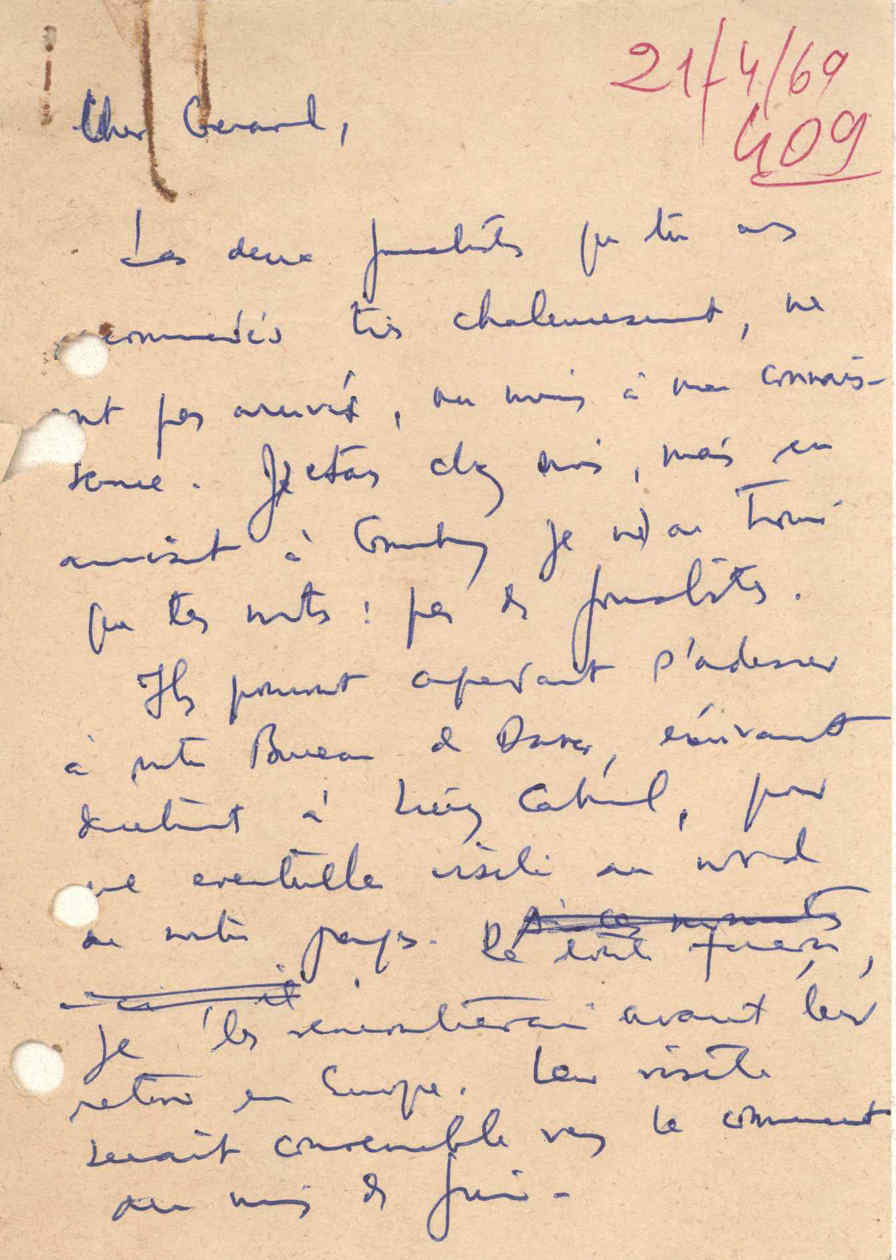 21/4/69
409
Cher Gérard,
Les deux journalistes que tu as
recommandés très chaleureusement, ne
sont pas arrivés, au moins à ma connais-
sance. J'étais chez moi, mais en
arrivant à Conakry je n'ai trouvé
que tes mots : pas de journalistes.
Ils pourront cependant s'adresser
à notre Bureau de Dakar, écrivant
directement à Luiz Cabral, pour
une éventuelle visite au nord
de notre pays. De toute façon,
je les rencontrerai avant leur
retour en Europe. Leur visite
serait convenable vers le commencement
du mois de Juin -